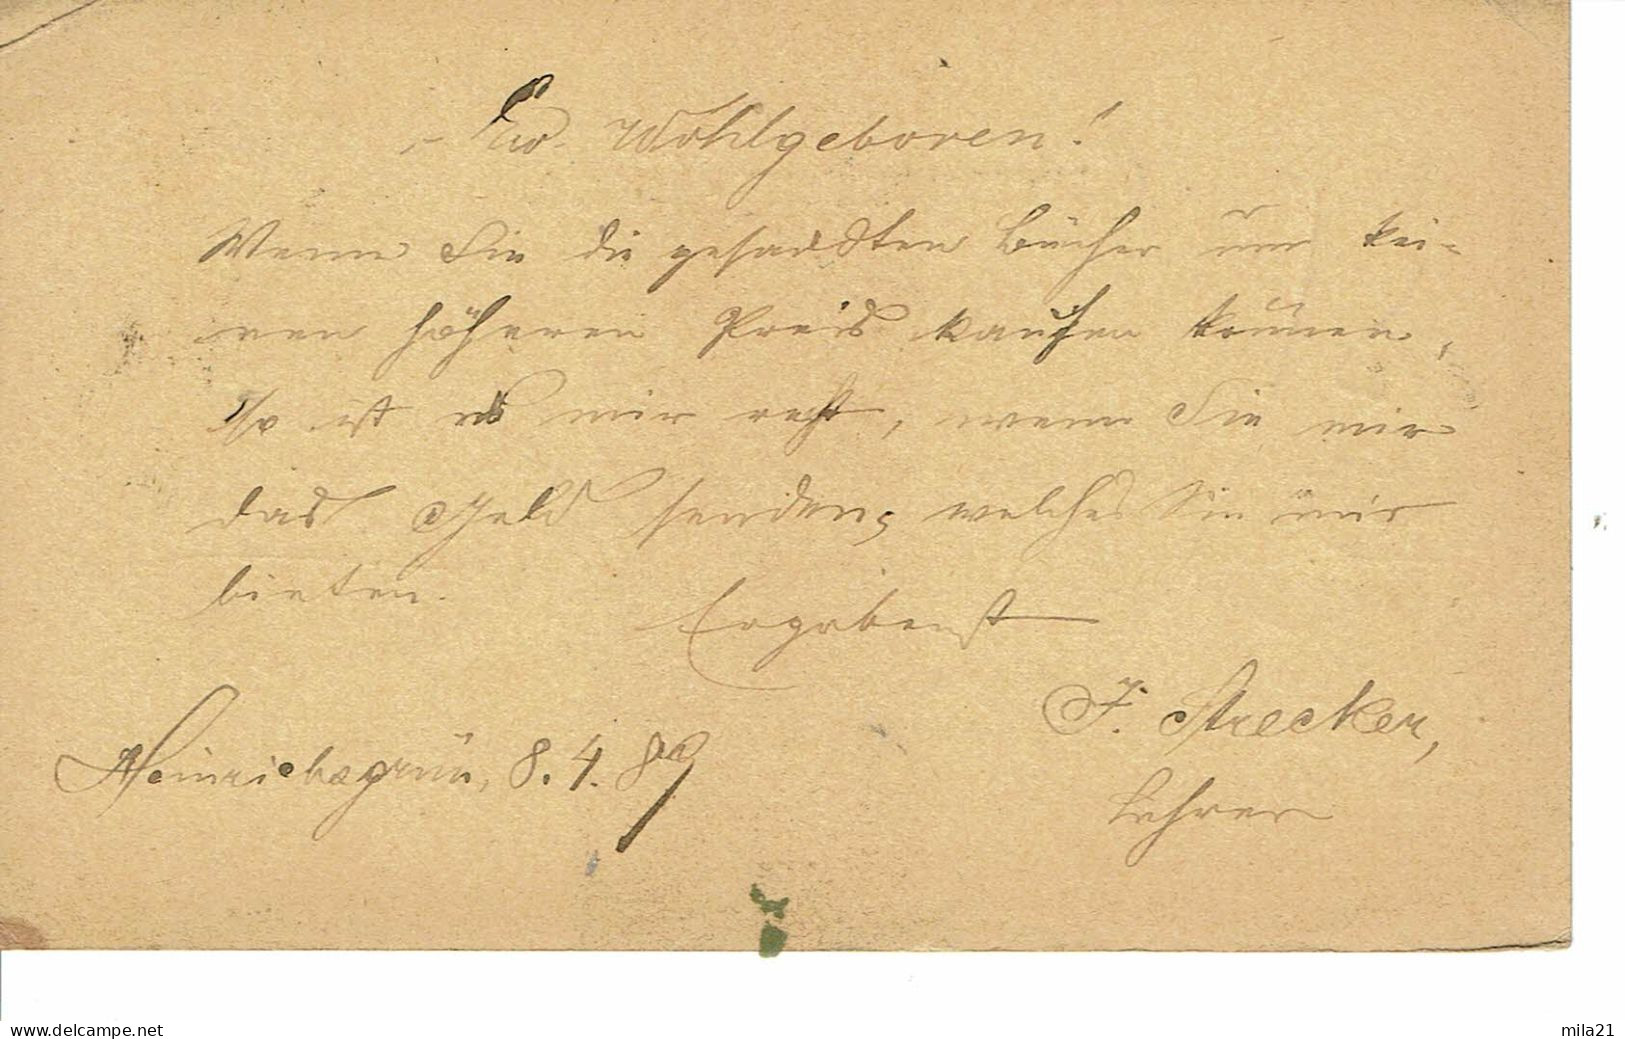 Ew. Wohlgeboren!
Wenn Sie die gesandten Bücher um kei-
nen höheren Preis kaufen können,
so ist es mir recht, wenn Sie mir
das Geld senden, welches Sie mir
bieten.
Ergebenst
J. Strecker,
Lehrer
Heinrichsgrün, 8. 4. 89
www.delcampe.net
mila21